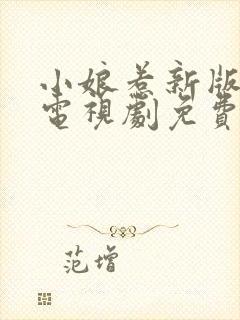 小娘惹新版
電視劇免費
范增